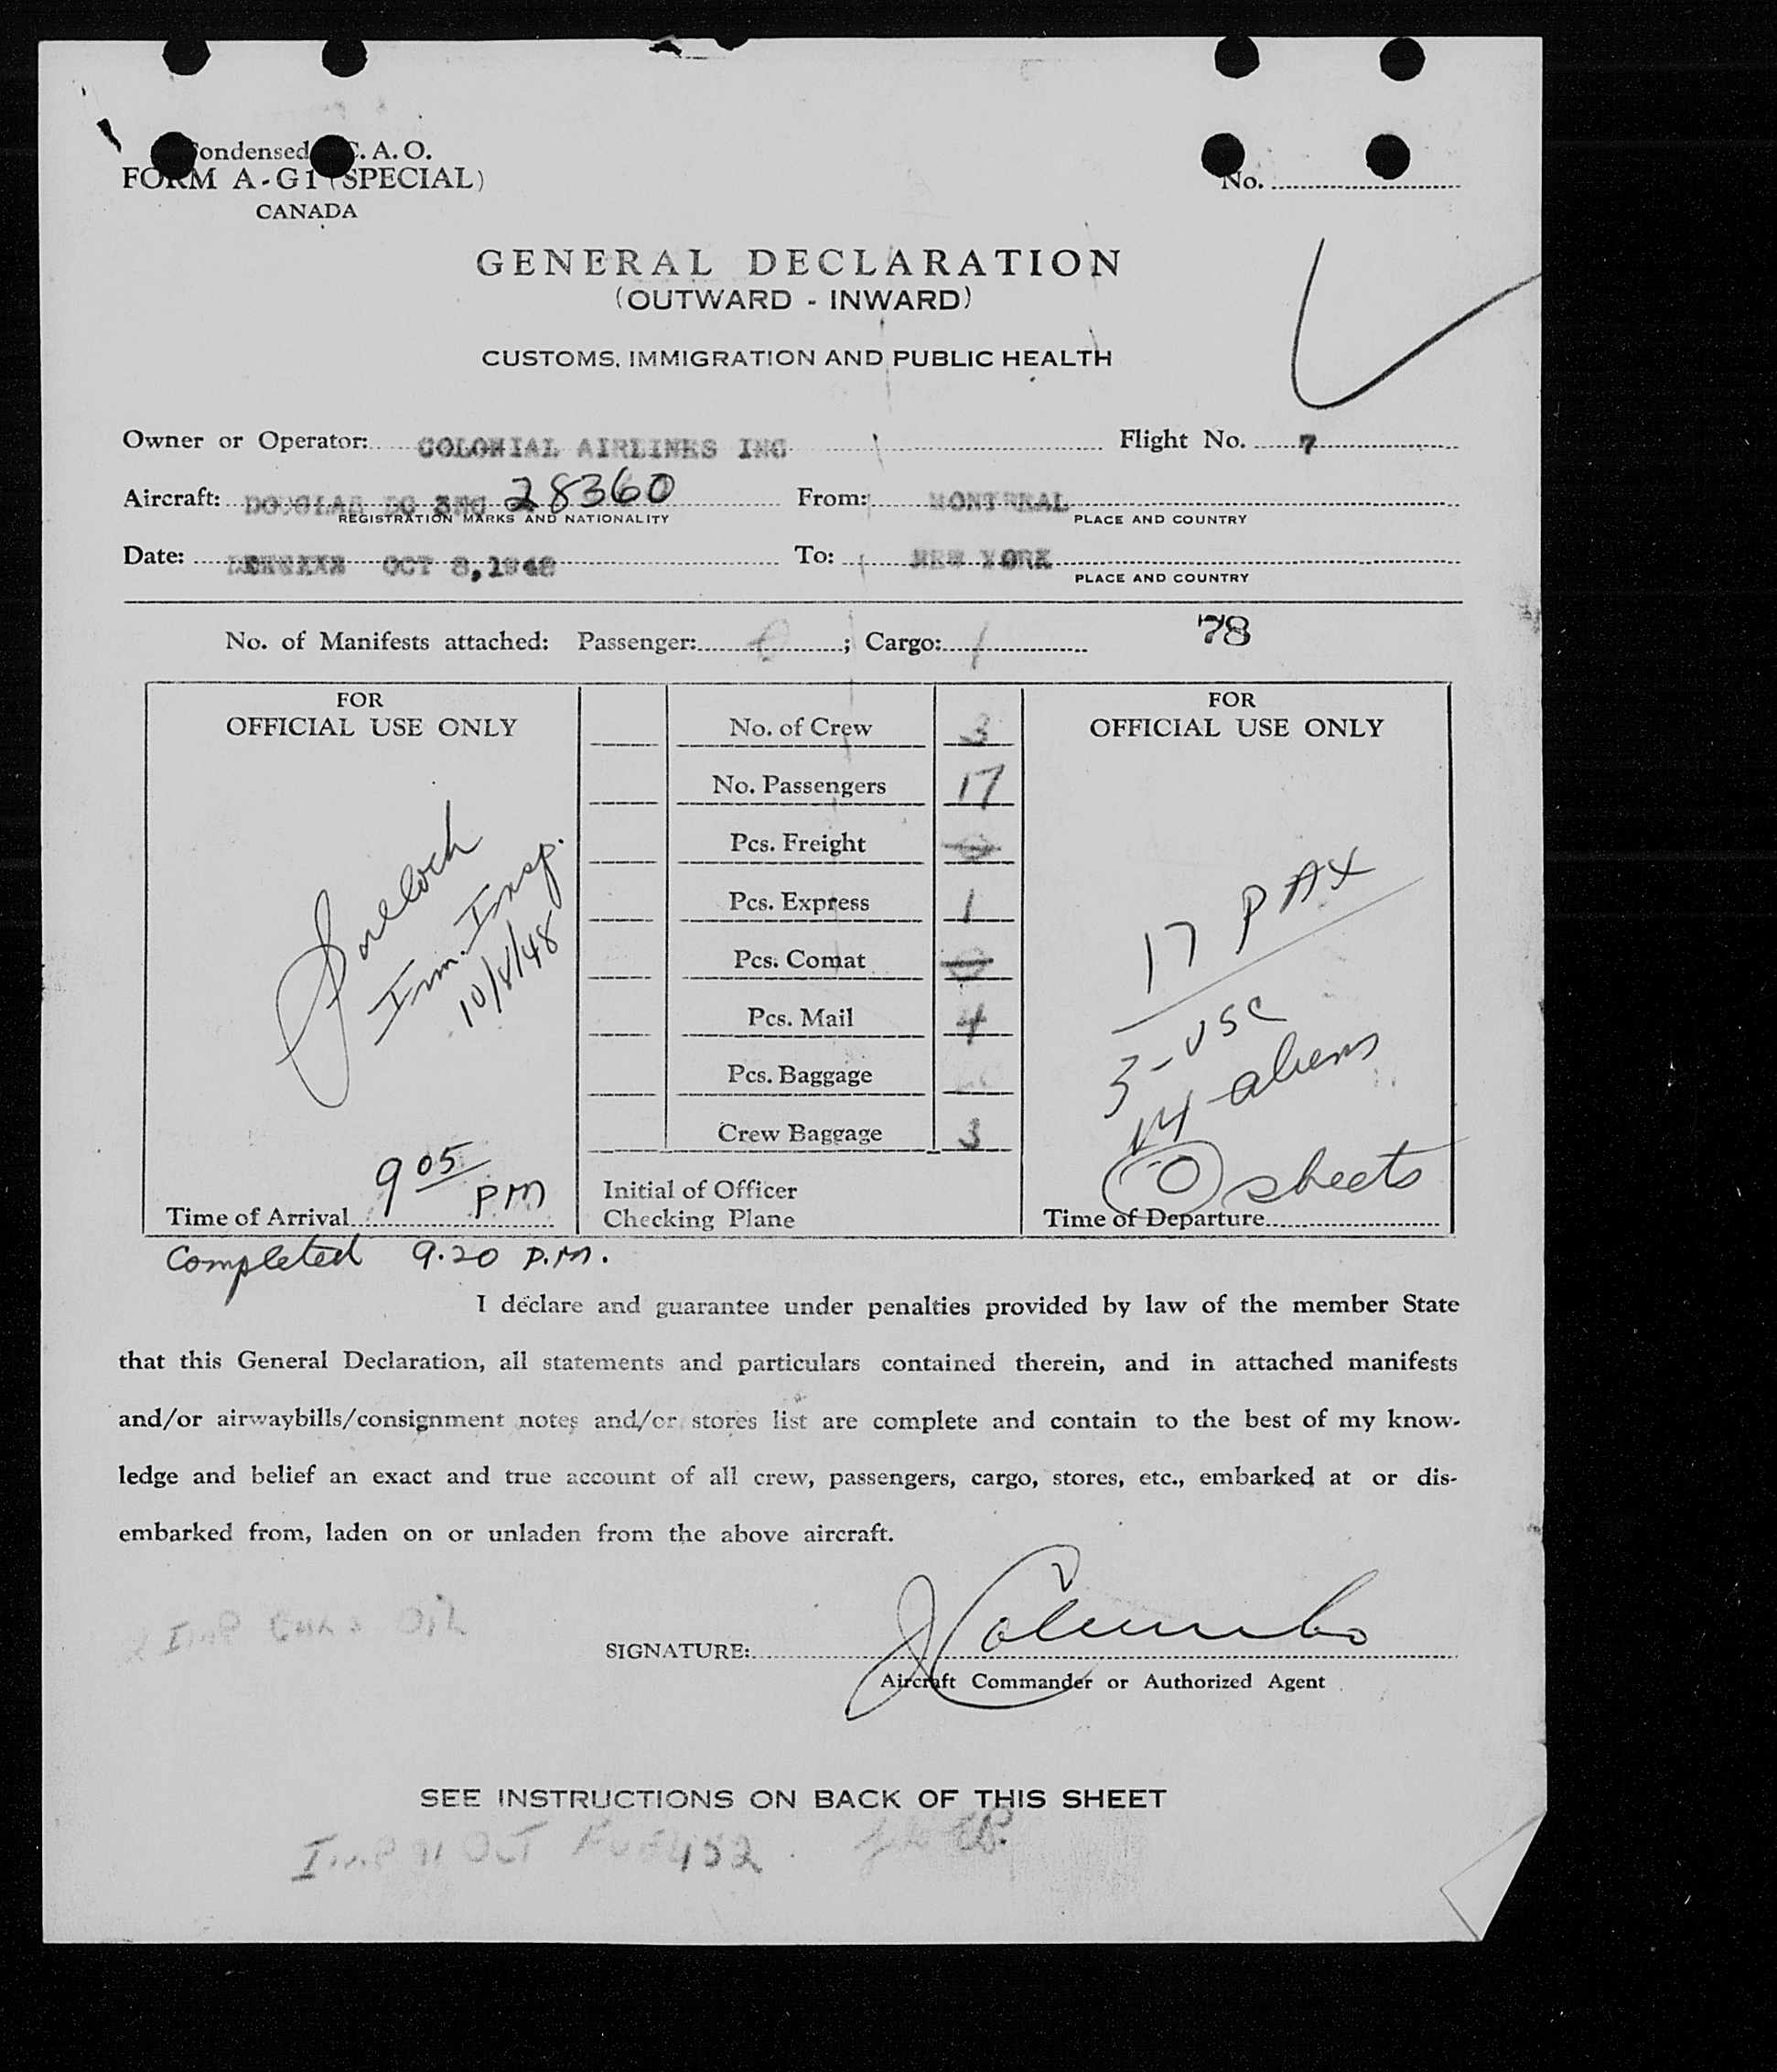 Condensed I.C.A.O.
FORM A-G1 (SPECIAL)
CANADA
No.
GENERAL DECLARATION
(OUTWARD - INWARD)
CUSTOMS, IMMIGRATION AND PUBLIC HEALTH
Owner or Operator: COLONIAL AIRLINES INC Flight No. 7
Aircraft: DOUGLAS DC 3NC 28360 From: MONTREAL
REGISTRATION MARKS AND NATIONALITY PLACE AND COUNTRY
Date: OCT 8, 1948 To: NEW YORK
PLACE AND COUNTRY
No. of Manifests attached: Passenger: 0 ; Cargo: 1 78
FOR
OFFICIAL USE ONLY
Imm. Insp.
10/8/48
Time of Arrival 9 05 PM
No. of Crew 3
No. Passengers 17
Pcs. Freight 0
Pcs. Express 1
Pcs. Comat 0
Pcs. Mail 4
Pcs. Baggage
Crew Baggage 3
Initial of Officer
Checking Plane
FOR
OFFICIAL USE ONLY
17 PAX
3 - USC
14 - aliens
0 sheets
Time of Departure
Completed 9.20 P.M.
I declare and guarantee under penalties provided by law of the member State
that this General Declaration, all statements and particulars contained therein, and in attached manifests
and/or airwaybills/consignment notes and/or stores list are complete and contain to the best of my know-
ledge and belief an exact and true account of all crew, passengers, cargo, stores, etc., embarked at or dis-
embarked from, laden on or unladen from the above aircraft.
OIL
SIGNATURE: J Columbo
Aircraft Commander or Authorized Agent
SEE INSTRUCTIONS ON BACK OF THIS SHEET